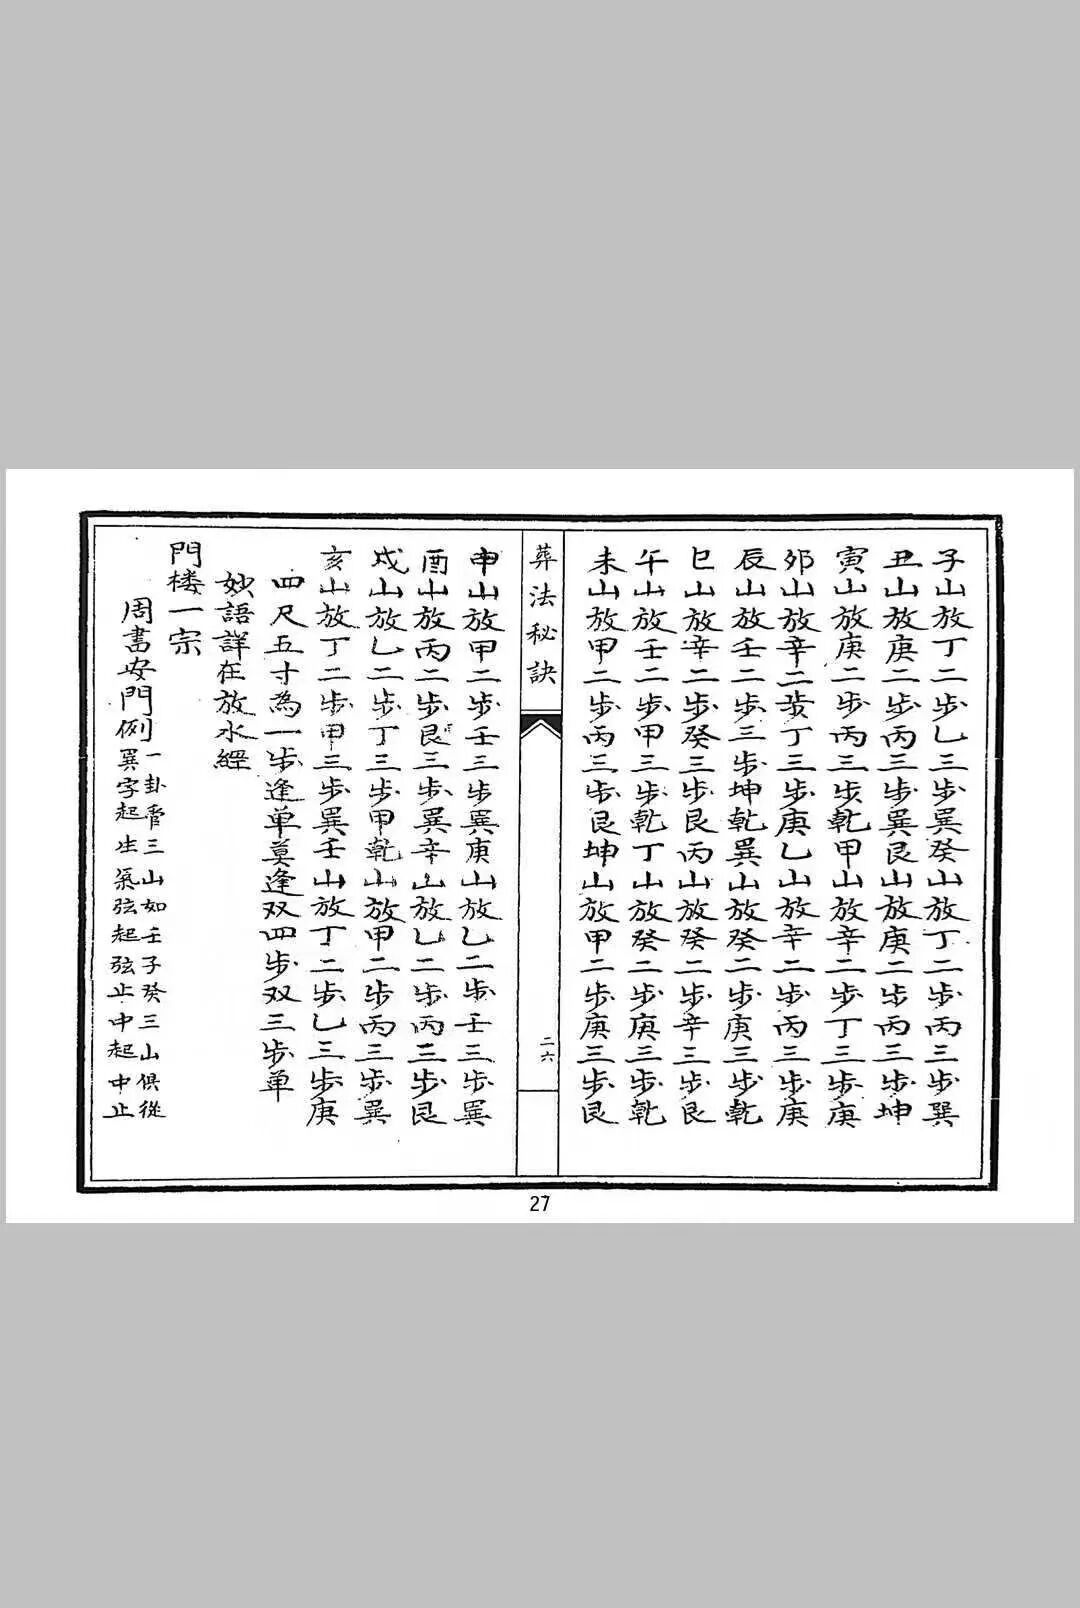 子山放丁二步乙三步巽癸山放丁二步丙三步巽
丑山放庚二步丙三步巽艮山放庚二步丙三步坤
寅山放庚二步丙三步乾甲山放辛二步丁三步庚
卯山放辛二步丁三步庚乙山放辛二步丙三步庚
辰山放壬二步三步坤乾巽山放癸二步庚三步乾
巳山放辛二步癸三步艮丙山放癸二步辛三步艮
午山放壬二步甲三步乾丁山放癸二步庚三步乾
未山放甲二步丙三步艮坤山放甲二步庚三步艮
葬法秘訣
二六
申山放甲二步壬三步巽庚山放乙二步壬三步巽
酉山放丙二步艮三步巽辛山放乙二步丙三步艮
戌山放乙二步丁三步甲乾山放甲二步丙三步巽
亥山放丁二步甲三步巽壬山放丁二步乙三步庚
四尺五寸為一步逢单莫逢双四步双三步单
妙語詳在放水經
門楼一宗
周書安門例一卦管三山如壬子癸三山俱從
巽字起生氣弦起弦止中起中止
27